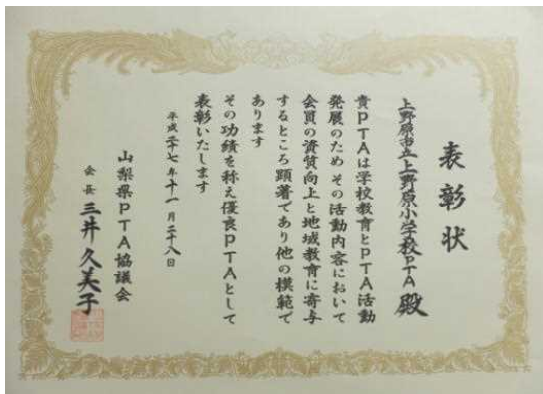 表彰状
上野原市立上野原小学校PTA 殿
貴PTAは学校教育とPTA活動
発展のため その活動内容において
会員の資質向上と地域教育に寄与
するところ顕著であり他の模範で
あります
その功績を称え優良PTAとして
表彰いたします
平成二十七年十一月二十八日
山梨県PTA協議会
会長 三井久美子